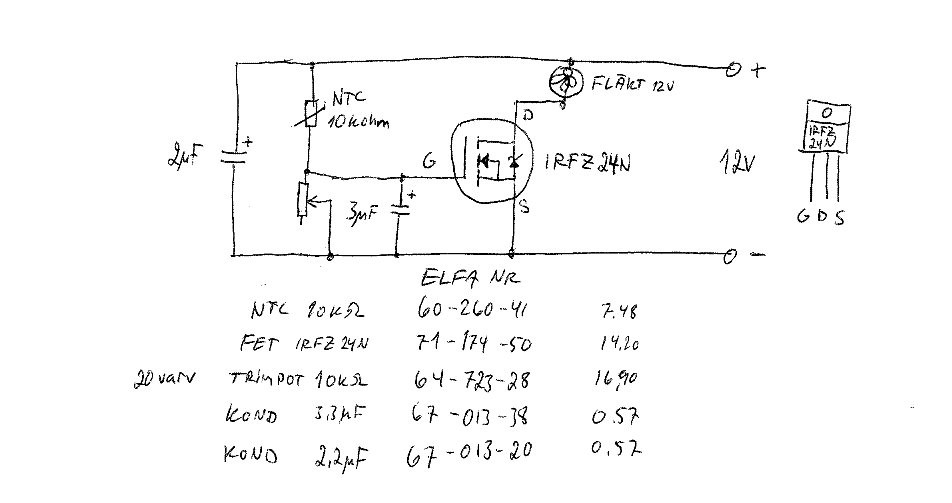 +
FLÄKT 12V
NTC
10Kohm
D
0
IRFZ
24N
+
2µF
G
IRFZ24N
12V
+
3µF
S
G D S
-
ELFA NR
NTC 10KΩ 60-260-41 7.48
FET IRFZ24N 71-174-50 14,20
20 varv TRIMPOT 10KΩ 64-723-28 16,90
KOND 3,3µF 67-013-38 0.57
KOND 2,2µF 67-013-20 0,57